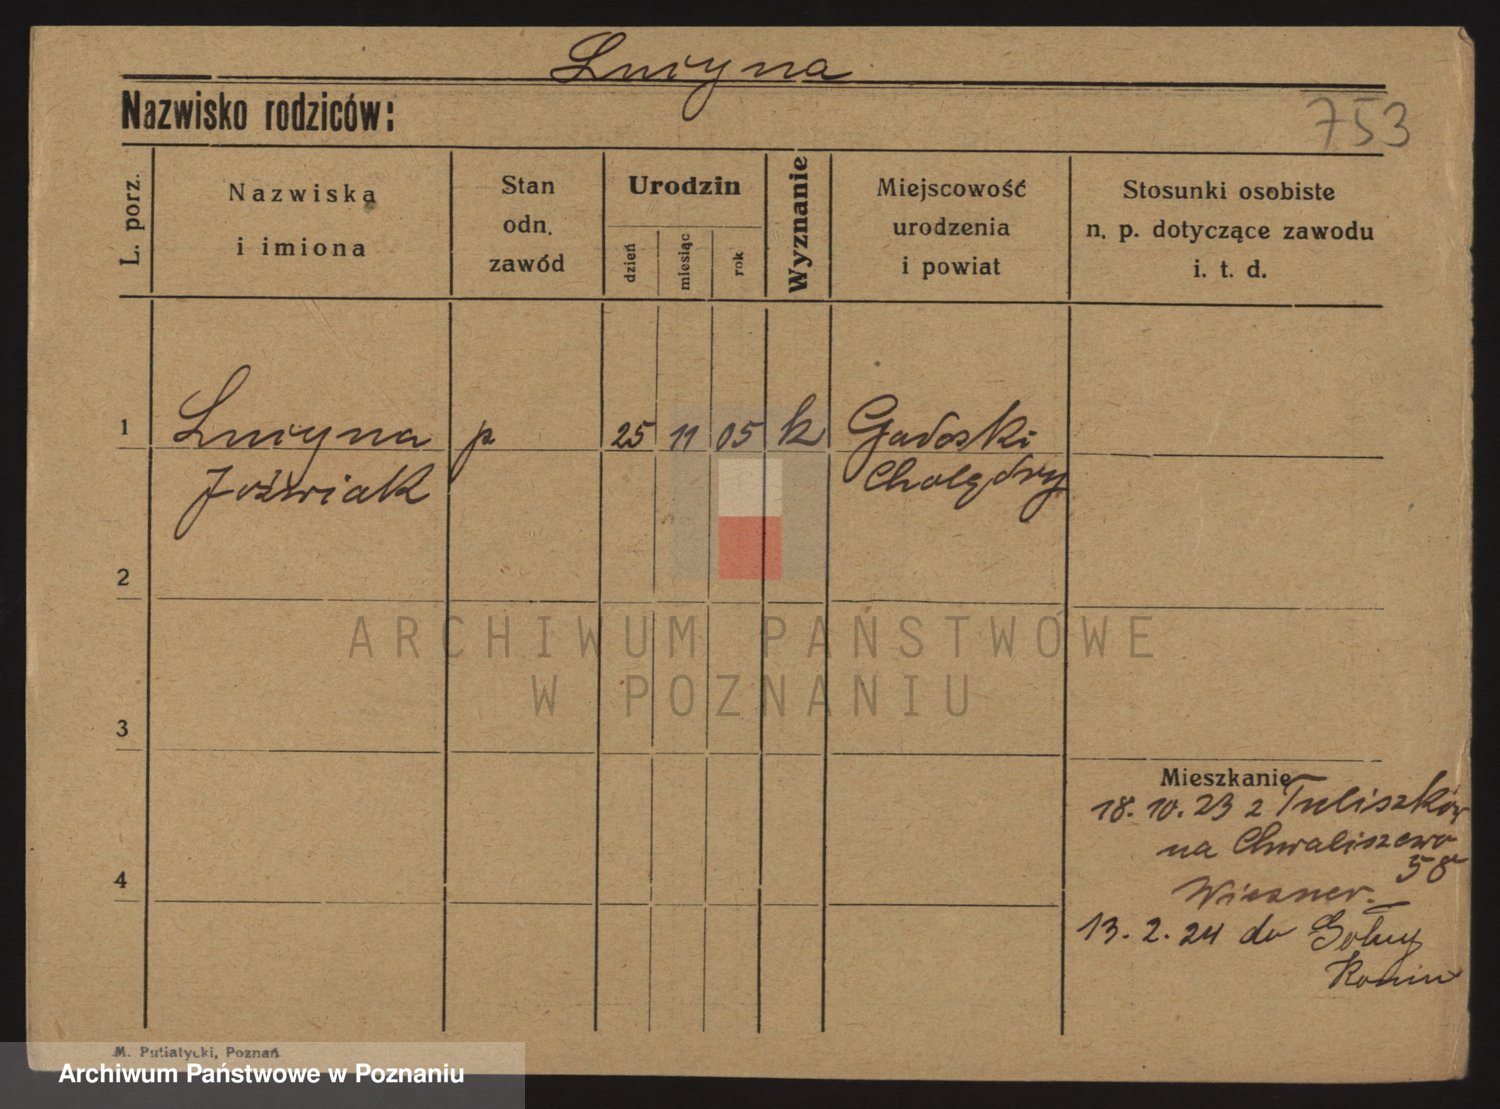 Lucyna
Nazwisko rodziców:
753
L. porz.
Nazwiska
i imiona
Stan
odn.
zawód
Urodzin
dzień
miesiąc
rok
Wyznanie
Miejscowość
urodzenia
i powiat
Stosunki osobiste
n. p. dotyczące zawodu
i. t. d.
1
Lucyna
p
25
11
05
k
Józwiak
2
3
4
ARCHIWUM PAŃSTWOWE
W POZNANIU
Mieszkanie
18. 10. 23 z Tuliszków
na Chwaliszewo
58
Wiesner.
13. 2. 24 do
Konin
M. Putiatycki, Poznań
Archiwum Państwowe w Poznaniu